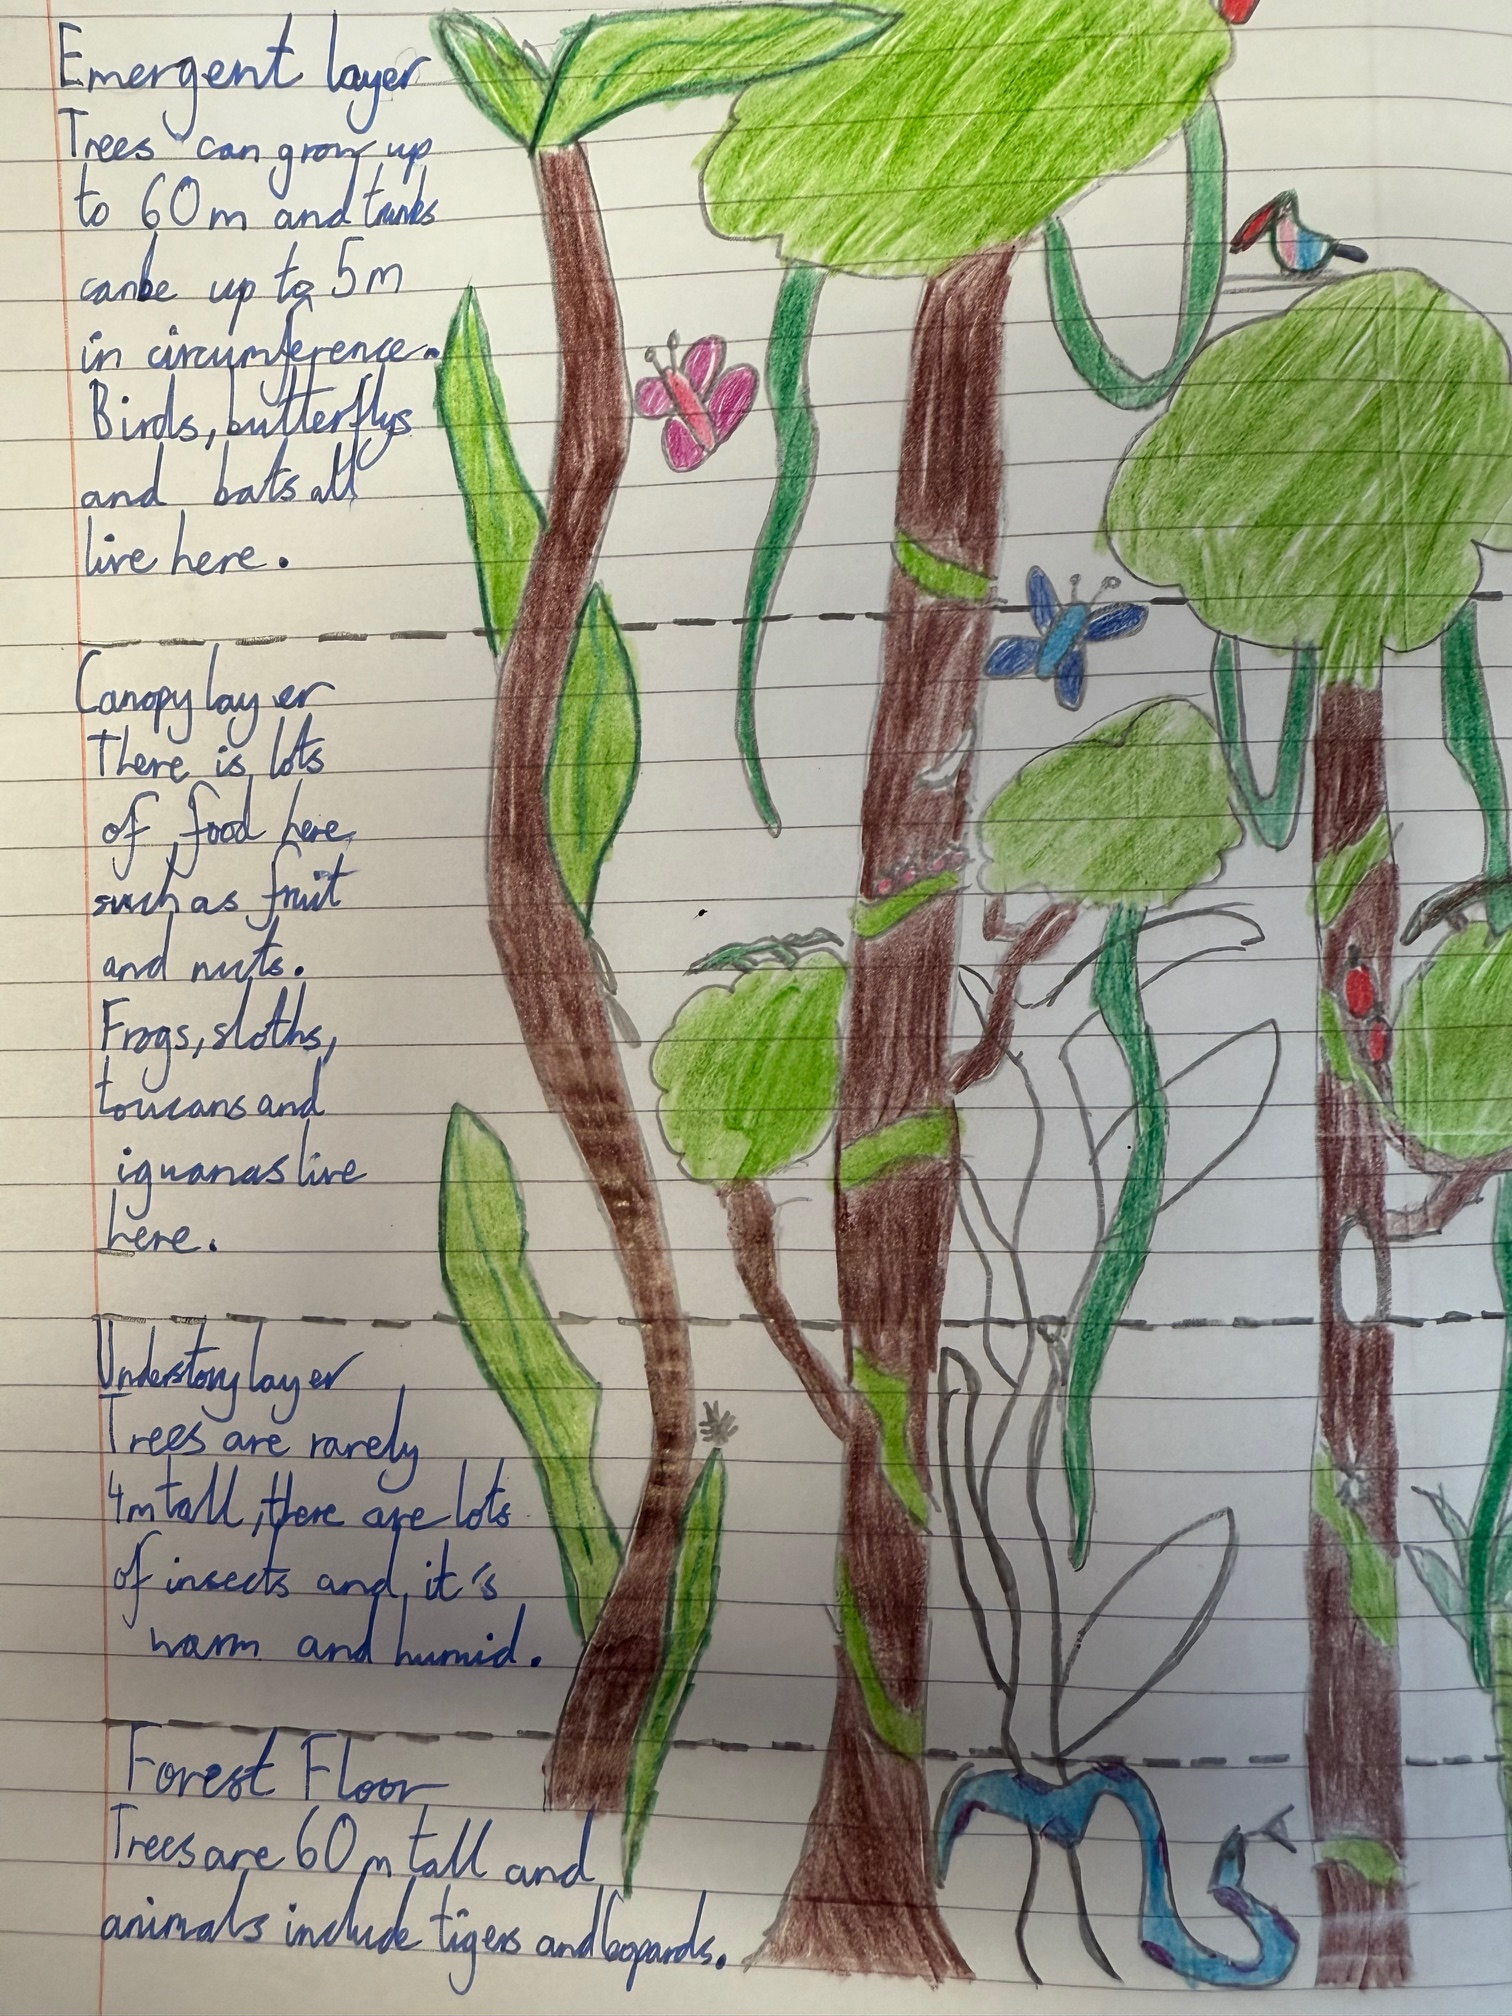 Emergent layer
Trees can grow up
to 60m and trunks
canbe up to 5m
in circumference.
Birds, butterflys
and bats all
live here.
Canopy layer
There is lots
of food here
such as fruit
and nuts.
Frogs, sloths,
toucans and
iguanas live
here.
Understory layer
Trees are rarely
4m tall, there are lots
of insects and it's
warm and humid.
Forest Floor
Trees are 60m tall and
animals include tigers and leopards.